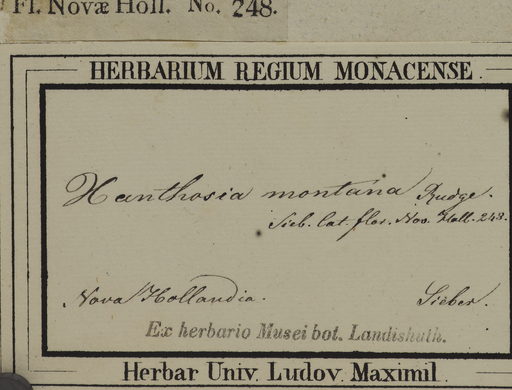 Fl. Novæ Holl. No. 248.
HERBARIUM REGIUM MONACENSE.
Xanthosia montana Rudge.
Sieb. lat. flor. Nov. Holl. 248.
Nova Hollandia. Sieber.
Ex herbario Musei bot. Landishuth.
Herbar Univ. Ludov Maximil.